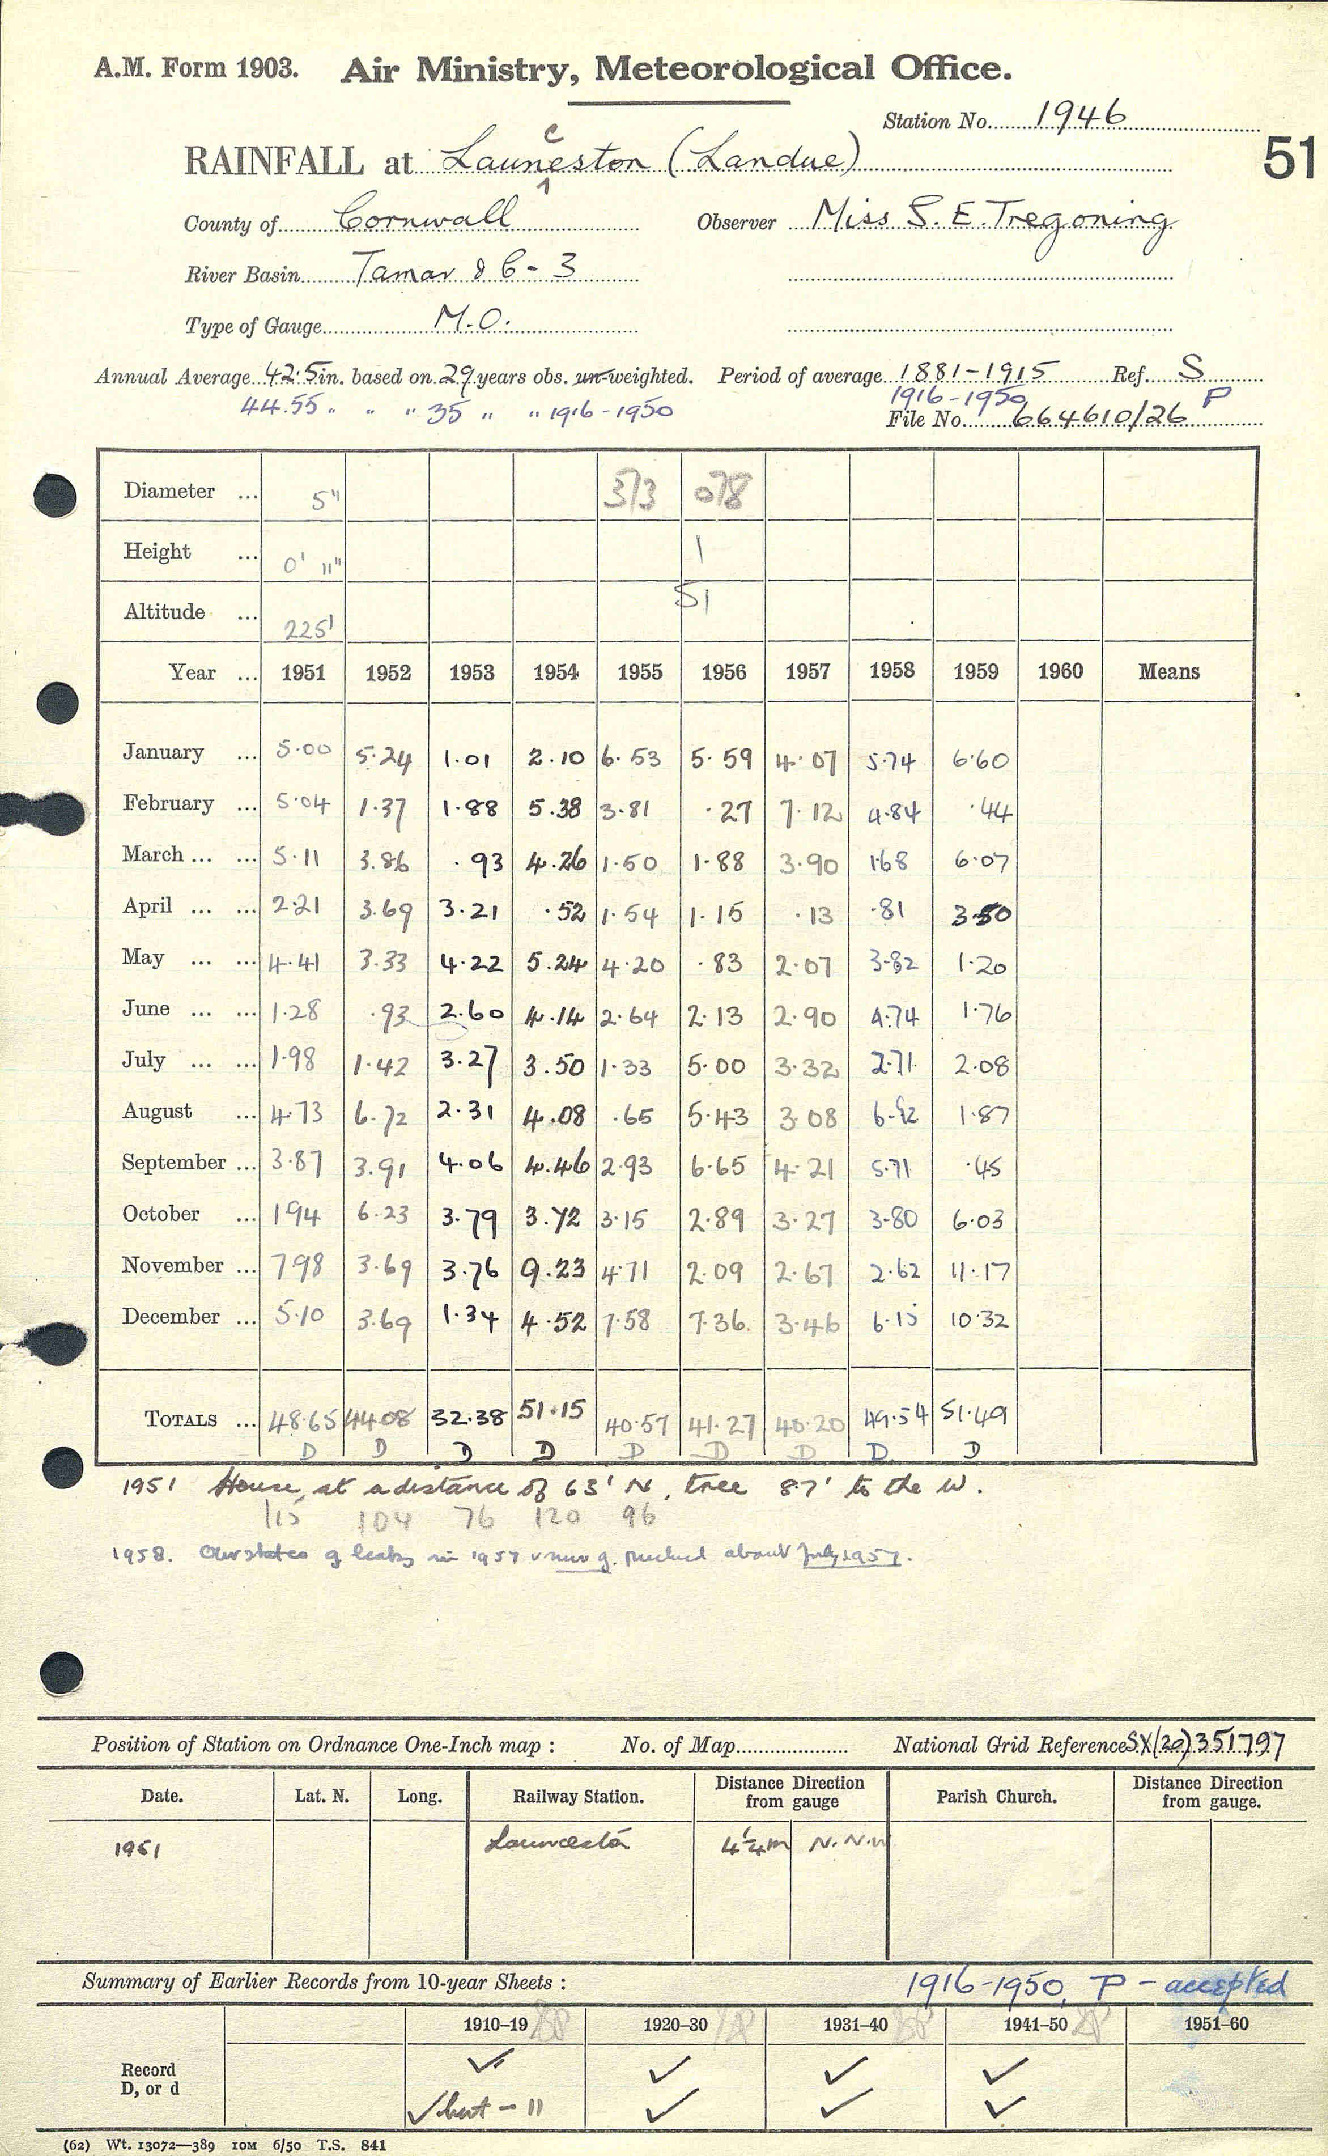 A.M. Form 1903. Air Ministry, Meteorological Office.
Station No. 1946
51
RAINFALL at Launceston (Landue)
County of Cornwall Observer Miss S. E. Tregoning
River Basin Tamar & C - 3
Type of Gauge M.O.
Annual Average 42.5 in. based on 29 years obs. un-weighted. Period of average 1881-1915 Ref. S
44.55 " " " 35 " " 1916-1950 1916-1950 P
File No. 664610/26
Diameter ... 5" 5/3 07/8
Height ... 0' 11" 1
Altitude ... 225' 51
Year ... 1951 1952 1953 1954 1955 1956 1957 1958 1959 1960 Means
January ... 5.00 5.24 1.01 2.10 6.53 5.59 4.07 5.74 6.60
February ... 5.04 1.37 1.88 5.38 3.81 .27 7.12 4.84 .44
March ... ... 5.11 3.86 .93 4.26 1.50 1.88 3.90 1.68 6.07
April ... ... 2.21 3.69 3.21 .52 1.54 1.15 .13 .81 3.50
May ... ... 4.41 3.33 4.22 5.24 4.20 .83 2.07 3.82 1.20
June ... ... 1.28 .93 2.60 4.14 2.64 2.13 2.90 4.74 1.76
July ... ... 1.98 1.42 3.27 3.50 1.33 5.00 3.32 2.71 2.08
August ... 4.73 6.72 2.31 4.08 .65 5.43 3.08 6.92 1.87
September ... 3.87 3.91 4.06 4.46 2.93 6.65 4.21 5.71 .45
October ... 1.94 6.23 3.79 3.72 3.15 2.89 3.27 3.80 6.03
November ... 7.98 3.69 3.76 9.23 4.71 2.09 2.67 2.62 11.17
December ... 5.10 3.69 1.34 4.52 7.58 7.36 3.46 6.15 10.32
TOTALS ... 48.65 44.08 32.38 51.15 40.57 41.27 40.20 49.54 51.49
D D D D D D D D D
1951 House, at a distance of 63' N, tree 87' to the W.
115 104 76 120 96
1958. Obsr states g leaky in 1957 & new g. about July 1957.
Position of Station on Ordnance One-Inch map : No. of Map National Grid Reference SX(20)351797
Date. Lat. N. Long. Railway Station. Distance from gauge Direction Parish Church. Distance from gauge. Direction
1951 Launceston 4¼m N.N.W
Summary of Earlier Records from 10-year Sheets : 1916-1950, P - accepted
1910-19 1920-30 1931-40 1941-50 1951-60
Record ✓ ✓ ✓ ✓
D, or d ✓ but - 11 ✓ ✓ ✓
(62) Wt. 13072—389 10M 6/50 T.S. 841